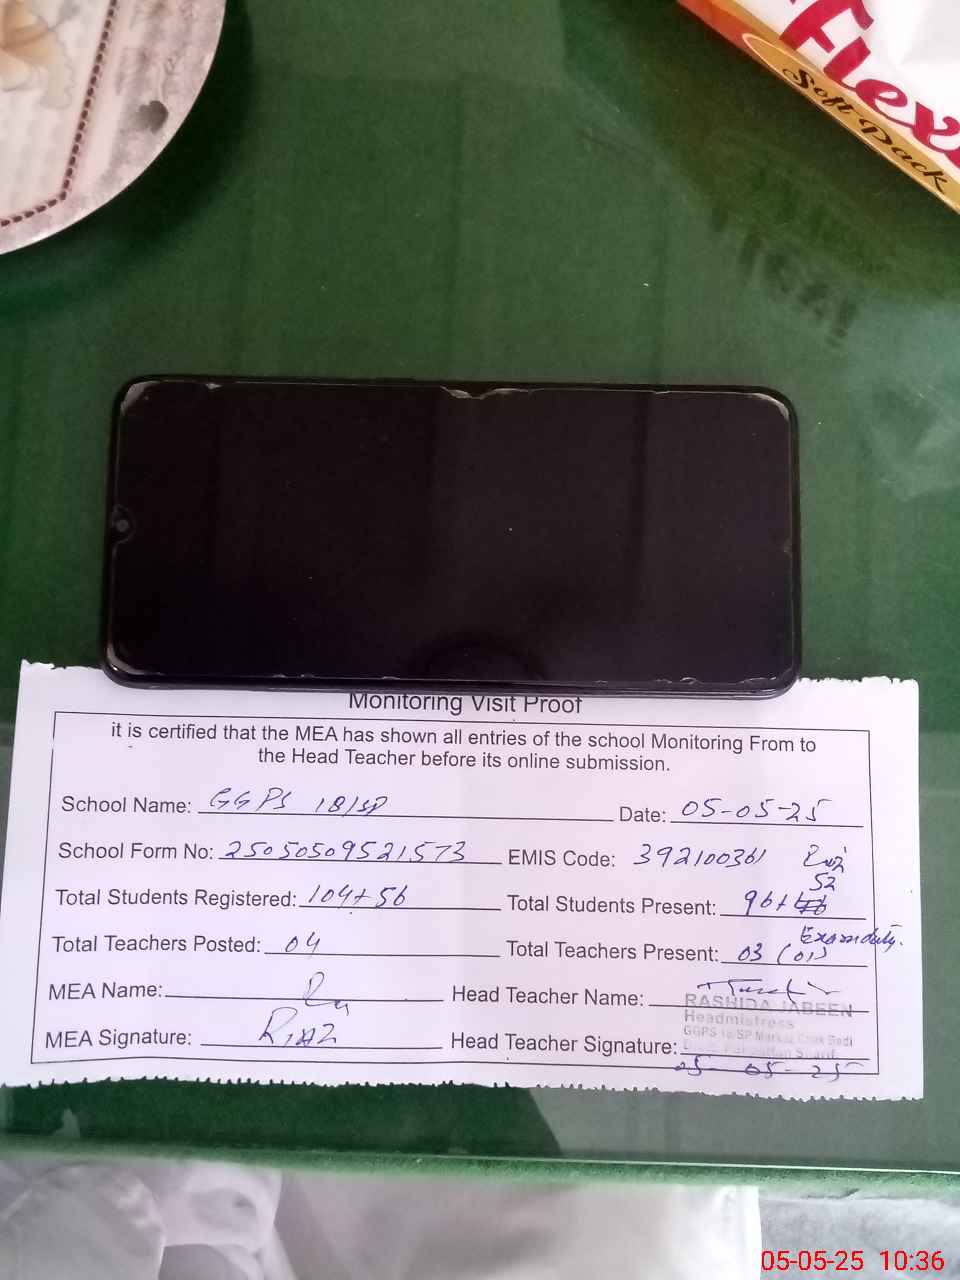 Flex
Soft Pack
Monitoring Visit Proof
it is certified that the MEA has shown all entries of the school Monitoring From to
the Head Teacher before its online submission.
School Name: GGPS 18/SP Date: 05-05-25
School Form No: 25050509521573 EMIS Code: 392100361
52
Total Students Registered: 104+56 Total Students Present: 96+
Exam duty.
Total Teachers Posted: 04 Total Teachers Present: 03 (01)
MEA Name: Head Teacher Name:
RASHIDA JABEEN
Headmistress
GGPS 18/SP Markaz Chak Bedi
MEA Signature: RIAZ Head Teacher Signature:
05-05-25
05-05-25 10:36